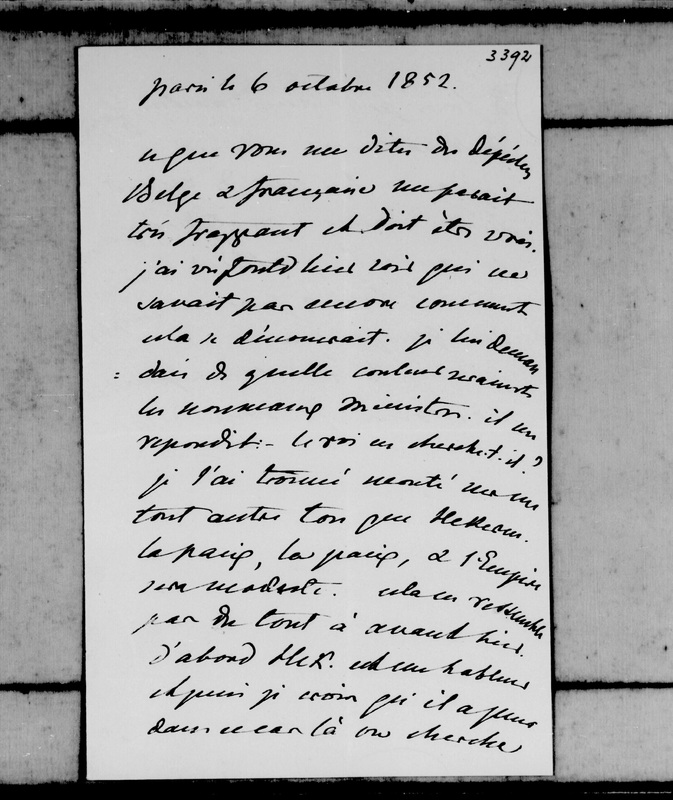 3392
paris le 6 octobre 1852.
ce que vous me dites des dépêches
Belge & française me parait
très frappant et doit être vrai.
j'ai vu fould hier soir qui ne
savait pas encore comment
cela se dénouerait. je lui deman
= dais de quelle couleur seraient
les nouveaux ministres. il me
repondit :- le roi en cherche-t-il ?
je l'ai trouvé monté sur un
tout autre ton que Hekern.
la paix, la paix, & l'Empire
sera modeste. cela ne ressemble
pas du tout à avant hier.
d'abord Hek. est un hableur
et puis je crois qu'il a peur
dans ce cas là on cherche